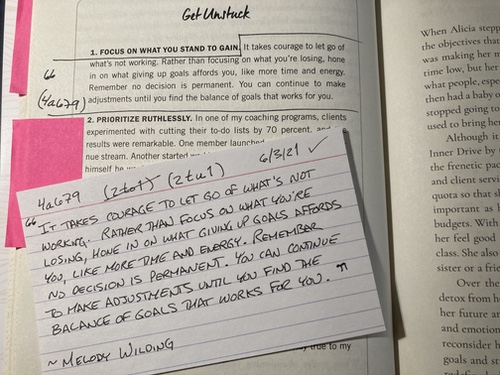 Get Unstuck
1. FOCUS ON WHAT YOU STAND TO GAIN. It takes courage to let go of
what's not working. Rather than focusing on what you're losing, hone
in on what giving up goals affords you, like more time and energy.
Remember no decision is permanent. You can continue to make
adjustments until you find the balance of goals that works for you.
(4a679)
2. PRIORITIZE RUTHLESSLY. In one of my coaching programs, clients
experimented with cutting their to-do lists by 70 percent, and
results were remarkable. One member launched
nue stream. Another started
himself he
4a679 (2to1) (2tu1) 6/3/21 ✓
“IT TAKES COURAGE TO LET GO OF WHAT'S NOT
WORKING. RATHER THAN FOCUS ON WHAT YOU'RE
LOSING, HONE IN ON WHAT GIVING UP GOALS AFFORDS
YOU, LIKE MORE TIME AND ENERGY. REMEMBER
NO DECISION IS PERMANENT. YOU CAN CONTINUE
TO MAKE ADJUSTMENTS UNTIL YOU FIND THE
BALANCE OF GOALS THAT WORKS FOR YOU.”
~ MELODY WILDING
true to my
When Alicia stepp
the objectives that
was making her m
time low, but her
what people, espe
then had a baby o
stopped going to
used to bring her
Although it
Inner Drive by
the frenetic pac
and client servi
quota so that s
important as h
budgets. With
her feel good
class. She also
sister or a frie
Over the
detox from h
her future ar
and emotion
reconsider h
goals and st